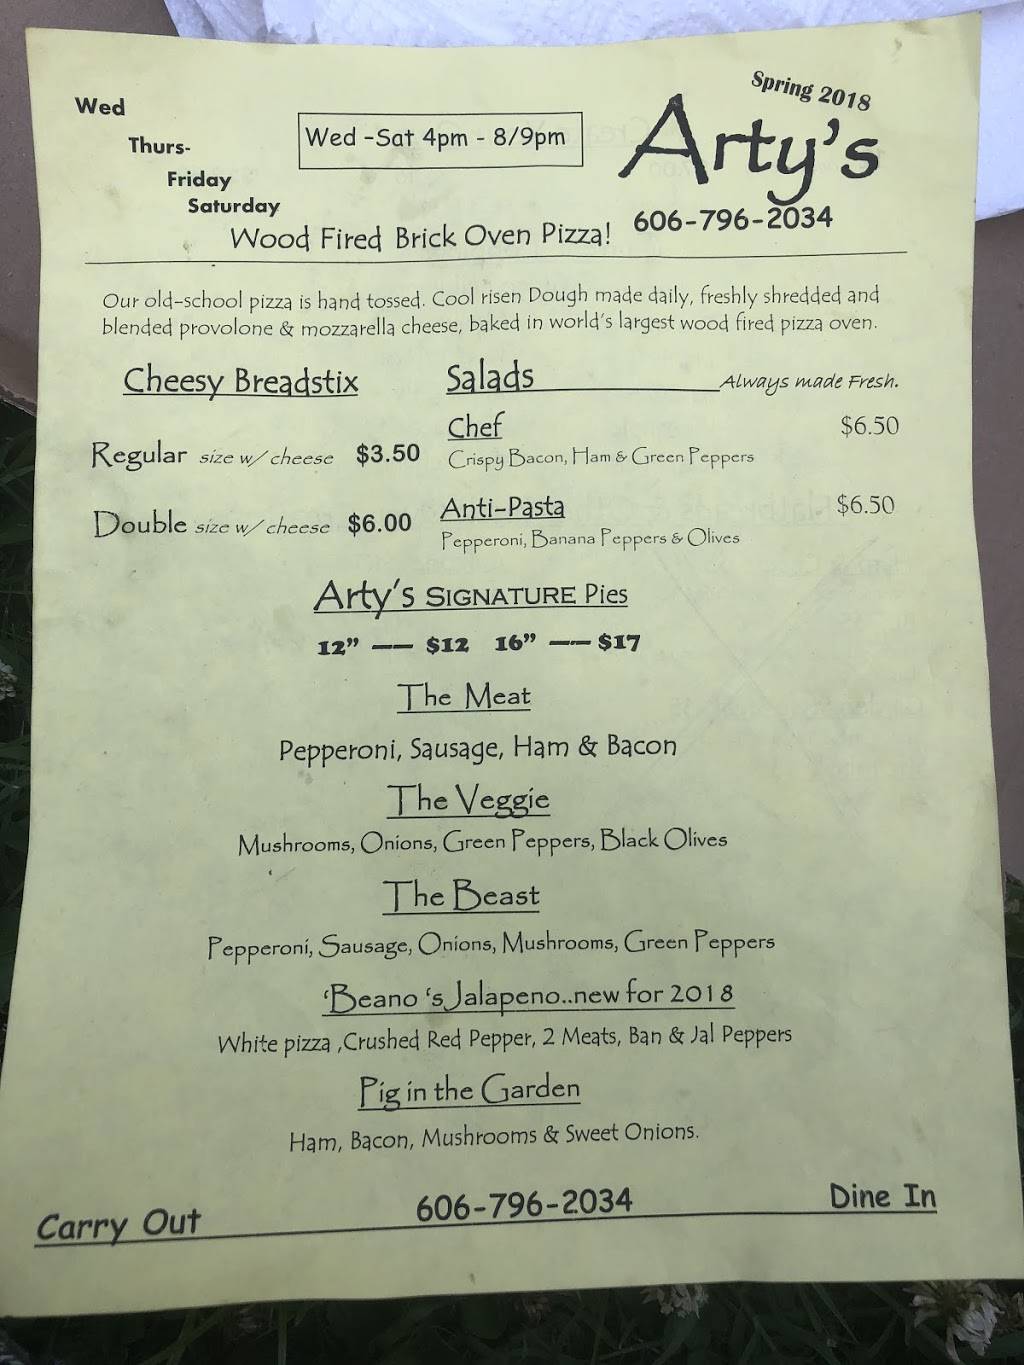 Spring 2018
Wed
Thurs-
Friday
Saturday
Wed -Sat 4pm - 8/9pm
Arty's
606-796-2034
Wood Fired Brick Oven Pizza!
Our old-school pizza is hand tossed. Cool risen Dough made daily, freshly shredded and
blended provolone & mozzarella cheese, baked in world's largest wood fired pizza oven.
Cheesy Breadstix
Regular size w/ cheese $3.50
Double size w/ cheese $6.00
Salads Always made Fresh.
Chef $6.50
Crispy Bacon, Ham & Green Peppers
Anti-Pasta $6.50
Pepperoni, Banana Peppers & Olives
Arty's SIGNATURE Pies
12" —— $12 16" —— $17
The Meat
Pepperoni, Sausage, Ham & Bacon
The Veggie
Mushrooms, Onions, Green Peppers, Black Olives
The Beast
Pepperoni, Sausage, Onions, Mushrooms, Green Peppers
'Beano 's Jalapeno..new for 2018
White pizza ,Crushed Red Pepper, 2 Meats, Ban & Jal Peppers
Pig in the Garden
Ham, Bacon, Mushrooms & Sweet Onions.
Carry Out 606-796-2034 Dine In